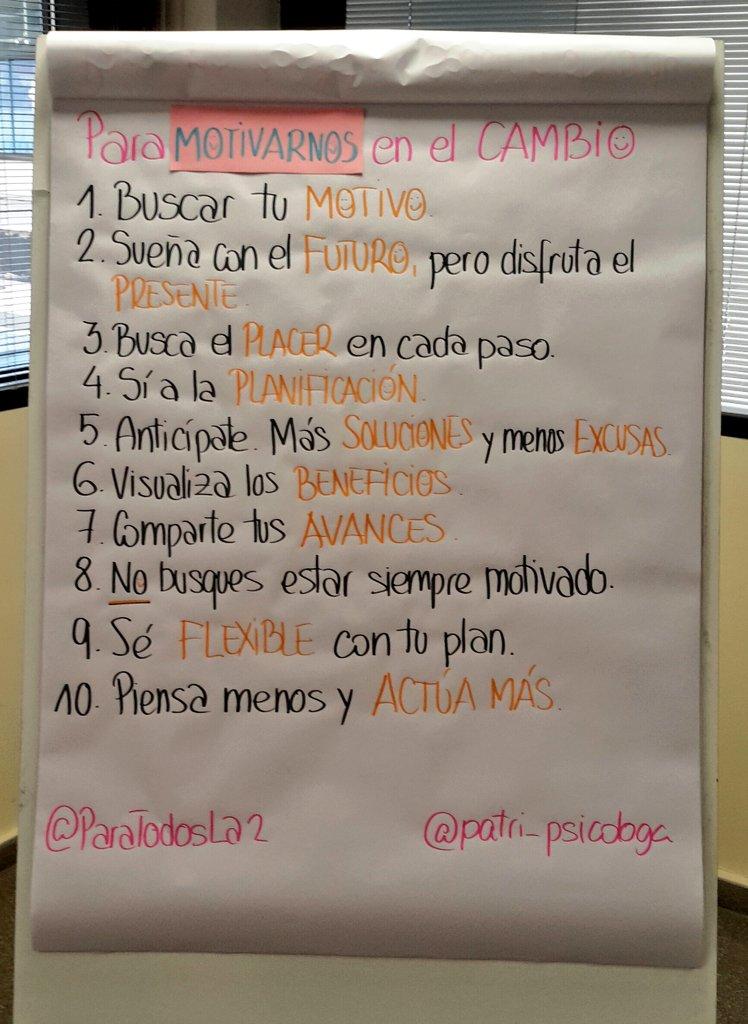 Para MOTIVARNOS en el CAMBIO
1. Buscar tu MOTIVO.
2. Sueña con el FUTURO, pero disfruta el
PRESENTE.
3. Busca el PLACER en cada paso.
4. Sí a la PLANIFICACIÓN.
5. Anticípate. Más SOLUCIONES y menos EXCUSAS.
6. Visualiza los BENEFICIOS.
7. Comparte tus AVANCES.
8. No busques estar siempre motivado.
9. Sé FLEXIBLE con tu plan.
10. Piensa menos y ACTÚA MÁS.
@ParaTodosLa2 @patri_psicologa